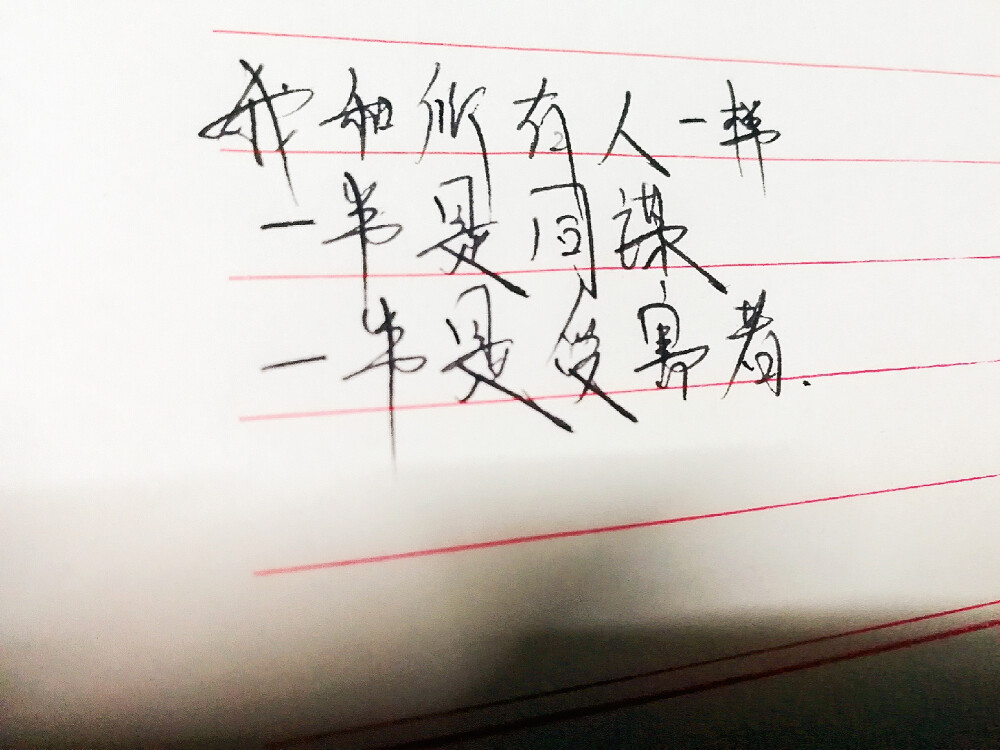 我和所有人一样
一半是同谋
一半是受害者.